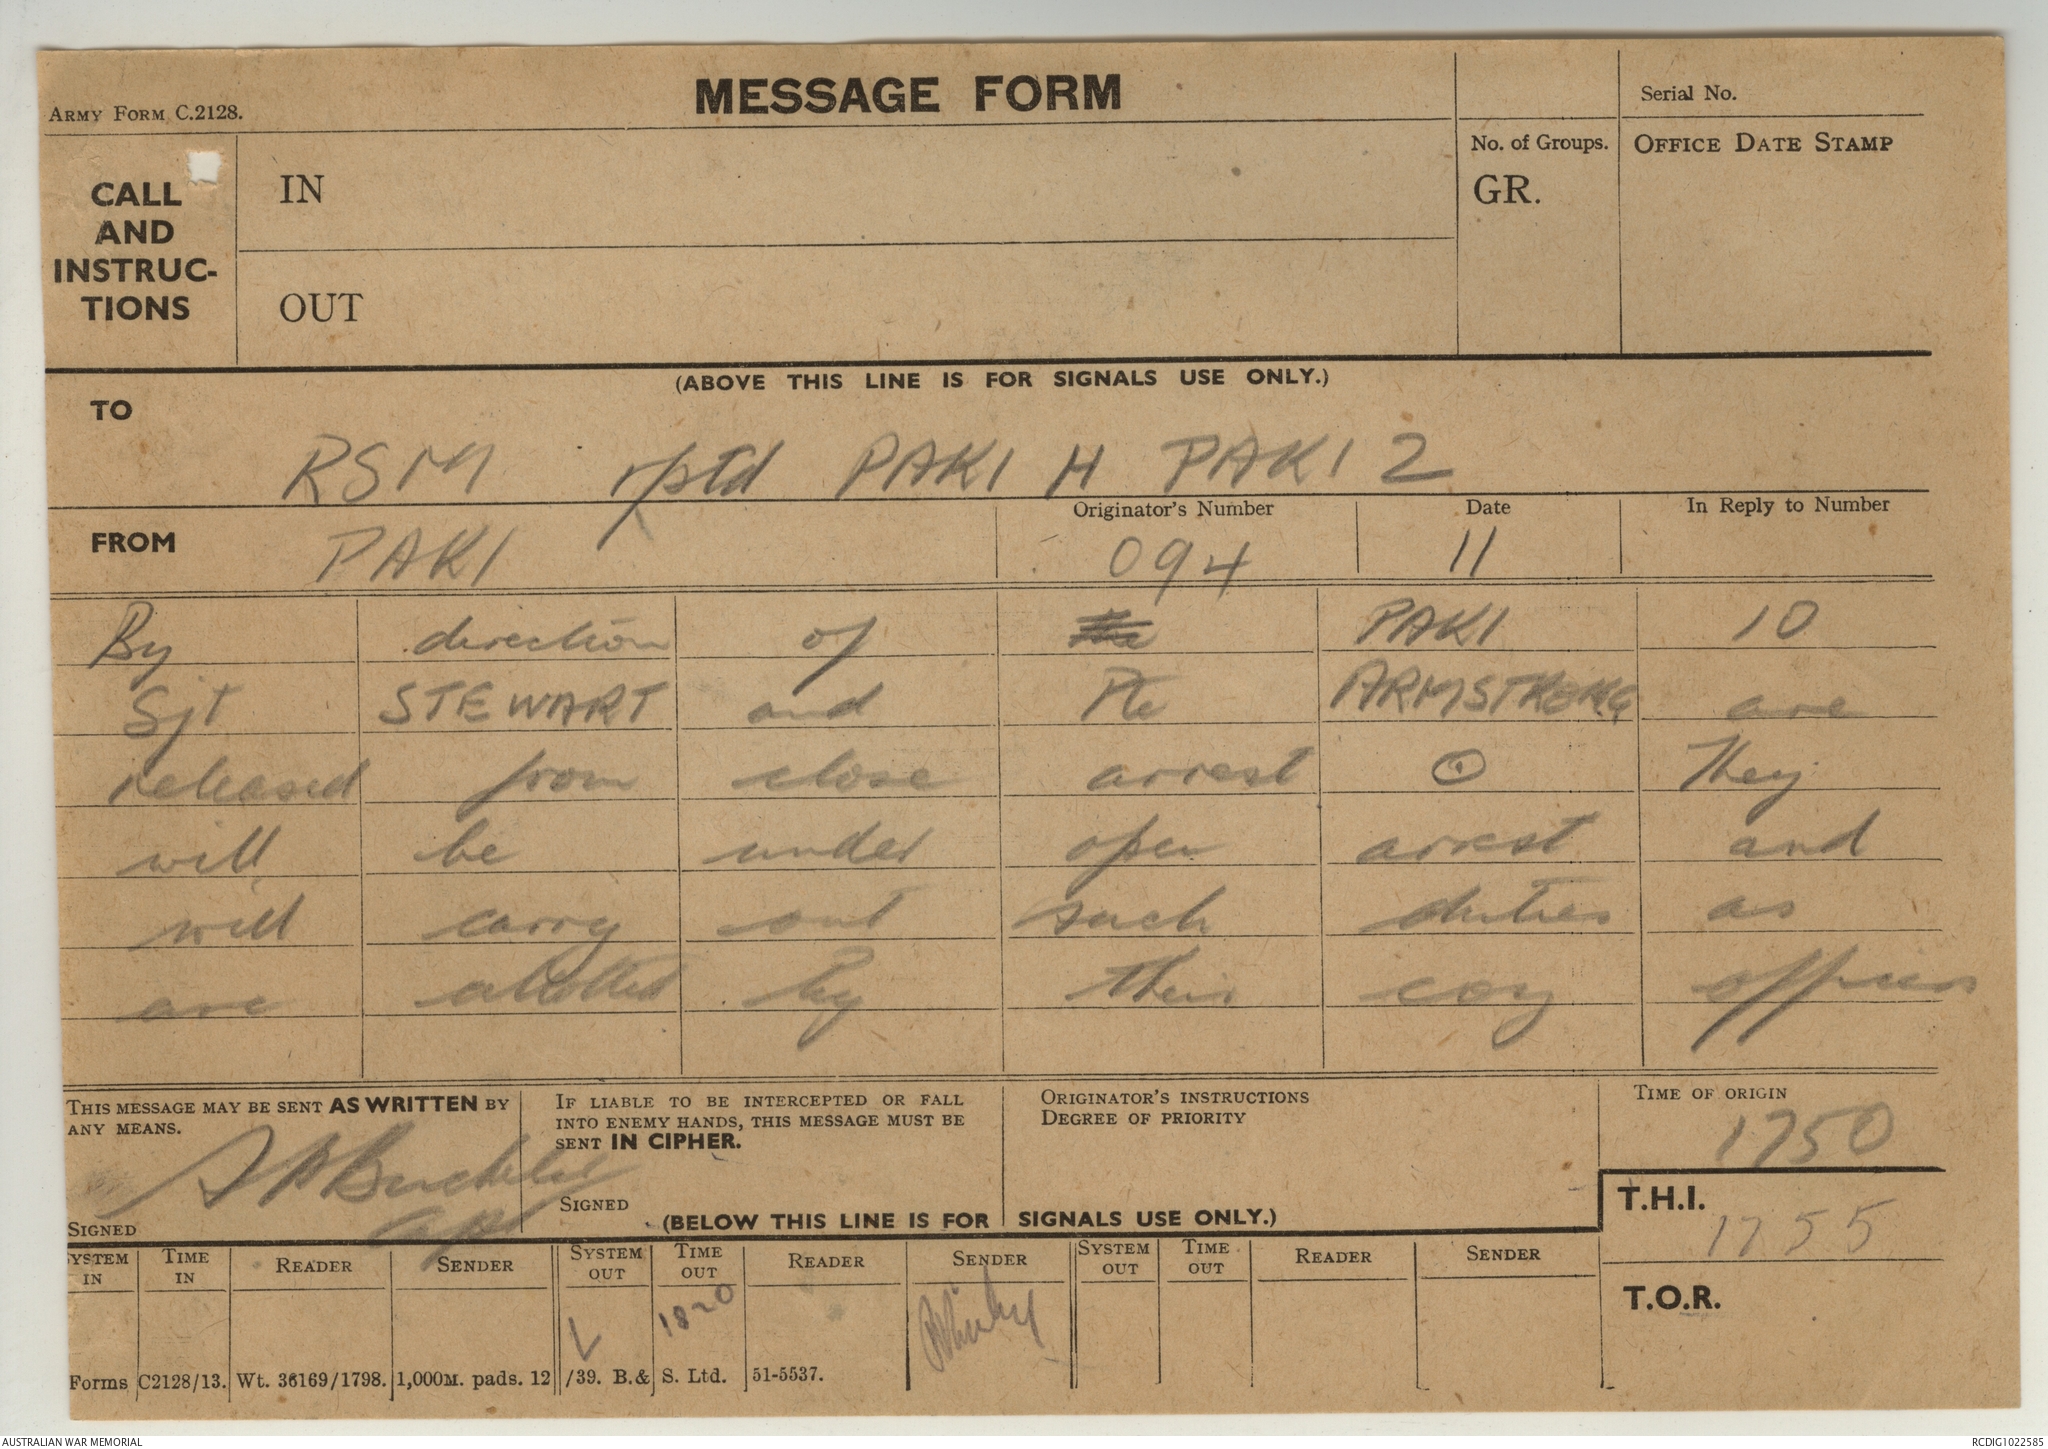 ARMY FORM C.2128.
MESSAGE FORM
Serial No.
CALL AND INSTRUC- TIONS
IN
No. of Groups.
GR.
OFFICE DATE STAMP
OUT
(ABOVE THIS LINE IS FOR SIGNALS USE ONLY.)
TO
RSM rptd PAKI H PAKI 2
FROM
PAKI
Originator's Number
094
Date
11
In Reply to Number
By direction of the PAKI 10
Sjt STEWART and Pte ARMSTRONG are
released from close arrest ⊙ They
will be under open arrest and
will carry out such duties as
are allotted by their coy officers
THIS MESSAGE MAY BE SENT AS WRITTEN BY ANY MEANS.
SIGNED
IF LIABLE TO BE INTERCEPTED OR FALL INTO ENEMY HANDS, THIS MESSAGE MUST BE SENT IN CIPHER.
SIGNED
ORIGINATOR'S INSTRUCTIONS
DEGREE OF PRIORITY
TIME OF ORIGIN
1750
(BELOW THIS LINE IS FOR SIGNALS USE ONLY.)
T.H.I.
1755
T.O.R.
YSTEM IN TIME IN READER SENDER SYSTEM OUT TIME OUT READER SENDER SYSTEM OUT TIME OUT READER SENDER
1820
Forms C2128/13. Wt. 36169/1798. 1,000M. pads. 12/39. B.& S. Ltd. 51-5537.
AUSTRALIAN WAR MEMORIAL
RCDIG1022585